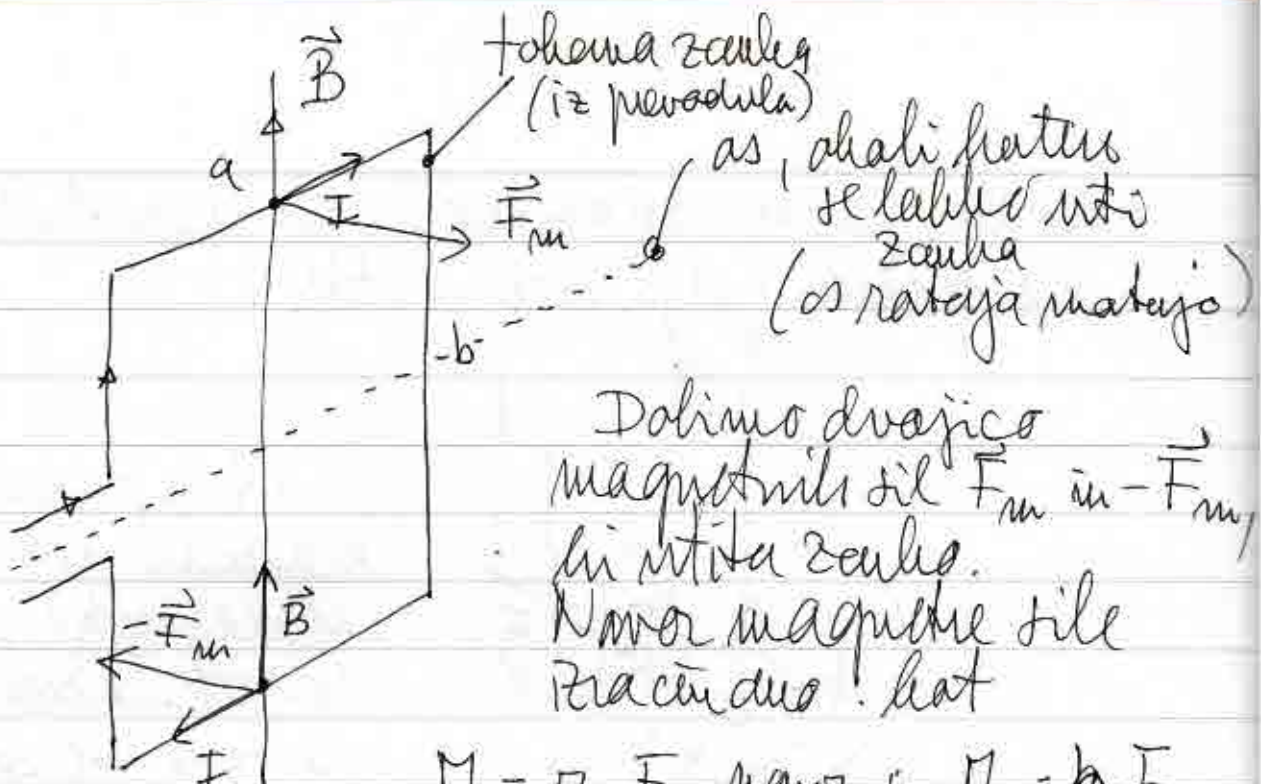 B⃗
tokovna zanka
(iz prevodnika)
a
I
F⃗m
os, okoli katere
se lahko vrti
zanka
(os rotacije
b
Dobimo dvojico
magnetnih sil F⃗m in -F⃗m,
ki vrtita zanko.
-F⃗m
B⃗
Navor magnetne sile
izračunamo kot
I
M = r F
M = b F